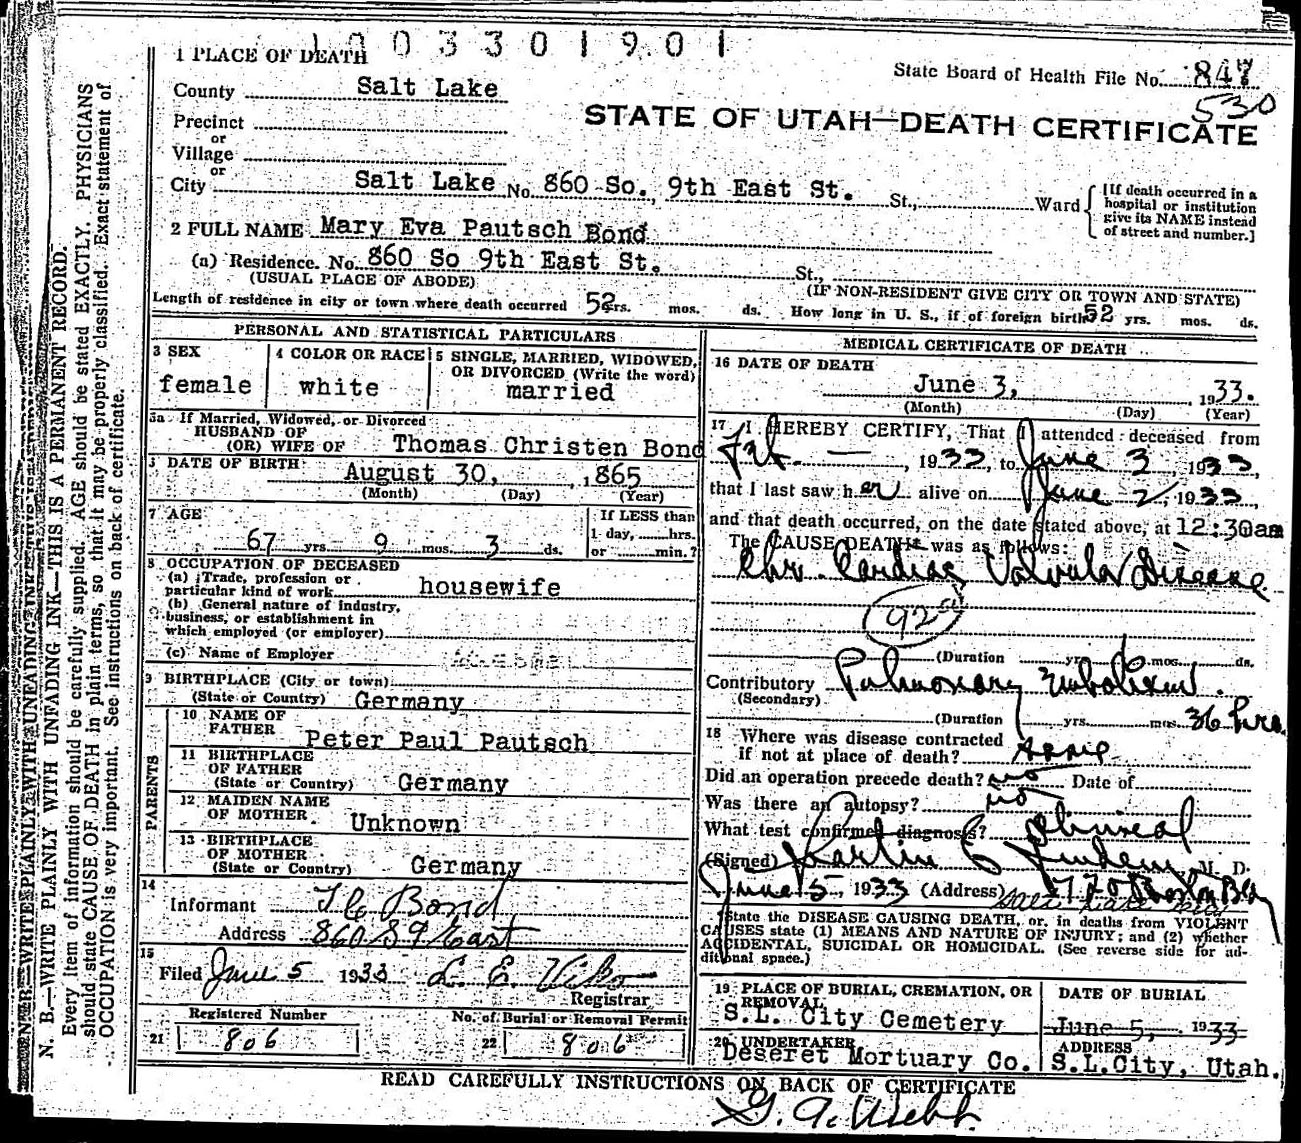 1003301901
1 PLACE OF DEATH
State Board of Health File No. 847
530
County Salt Lake
STATE OF UTAH—DEATH CERTIFICATE
Precinct
or
Village
or
City Salt Lake No. 860 So. 9th East St. St., Ward
[If death occurred in a hospital or institution give its NAME instead of street and number.]
2 FULL NAME Mary Eva Pautsch Bond
(a) Residence. No. 860 So 9th East St. St.,
(USUAL PLACE OF ABODE) (IF NON-RESIDENT GIVE CITY OR TOWN AND STATE)
Length of residence in city or town where death occurred 52 yrs. mos. ds. How long in U. S., if of foreign birth 52 yrs. mos. ds.
PERSONAL AND STATISTICAL PARTICULARS
3 SEX
female
4 COLOR OR RACE
white
5 SINGLE, MARRIED, WIDOWED, OR DIVORCED (Write the word)
married
5a If Married, Widowed, or Divorced
HUSBAND OF
(OR) WIFE OF Thomas Christen Bond
DATE OF BIRTH
August 30, ,865
(Month) (Day) (Year)
7 AGE
67 yrs 9 mos. 3 ds.
If LESS than
1 day, hrs.
or min.?
8 OCCUPATION OF DECEASED
(a) Trade, profession or
particular kind of work housewife
(b) General nature of industry,
business, or establishment in
which employed (or employer)
(c) Name of Employer
9 BIRTHPLACE (City or town)
(State or Country) Germany
PARENTS
10 NAME OF
FATHER Peter Paul Pautsch
11 BIRTHPLACE
OF FATHER
(State or Country) Germany
12 MAIDEN NAME
OF MOTHER Unknown
13 BIRTHPLACE
OF MOTHER
(State or Country) Germany
14
Informant T C Bond
Address 860 S 9 East
15
Filed June 5 1933
Registrar
Registered Number
21 806
No. of Burial or Removal Permit
22 806
MEDICAL CERTIFICATE OF DEATH
16 DATE OF DEATH
June 3, 1933.
(Month) (Day) (Year)
17 I HEREBY CERTIFY, That I attended deceased from
Feb. — , 1933, to June 3, 1933,
that I last saw her alive on June 2, 1933,
and that death occurred, on the date stated above, at 12:30am
The CAUSE DEATH* was as follows:
Chr. Cardiac Valvular Disease
92
(Duration yrs. mos. ds.
Contributory Pulmonary Embolism.
(Secondary)
(Duration yrs. mos. 36 hrs.
18 Where was disease contracted
if not at place of death?
Did an operation precede death? no Date of
Was there an autopsy? no
What test confirmed diagnosis? Clinical
(Signed) M. D.
June 5, 1933 (Address)
*State the DISEASE CAUSING DEATH, or, in deaths from VIOLENT
CAUSES state (1) MEANS AND NATURE OF INJURY; and (2) whether
ACCIDENTAL, SUICIDAL OR HOMICIDAL. (See reverse side for ad-
ditional space.)
19 PLACE OF BURIAL, CREMATION, OR
REMOVAL
S.L. City Cemetery
DATE OF BURIAL
June 5, 1933
20 UNDERTAKER
Deseret Mortuary Co.
ADDRESS
S.L.City, Utah.
READ CAREFULLY INSTRUCTIONS ON BACK OF CERTIFICATE
G. A. Webb.
N. B.—WRITE PLAINLY WITH UNFADING INK—THIS IS A PERMANENT RECORD.
Every item of information should be carefully supplied. AGE should be stated EXACTLY. PHYSICIANS
should state CAUSE OF DEATH in plain terms, so that it may be properly classified. Exact statement of
OCCUPATION is very important. See instructions on back of certificate.